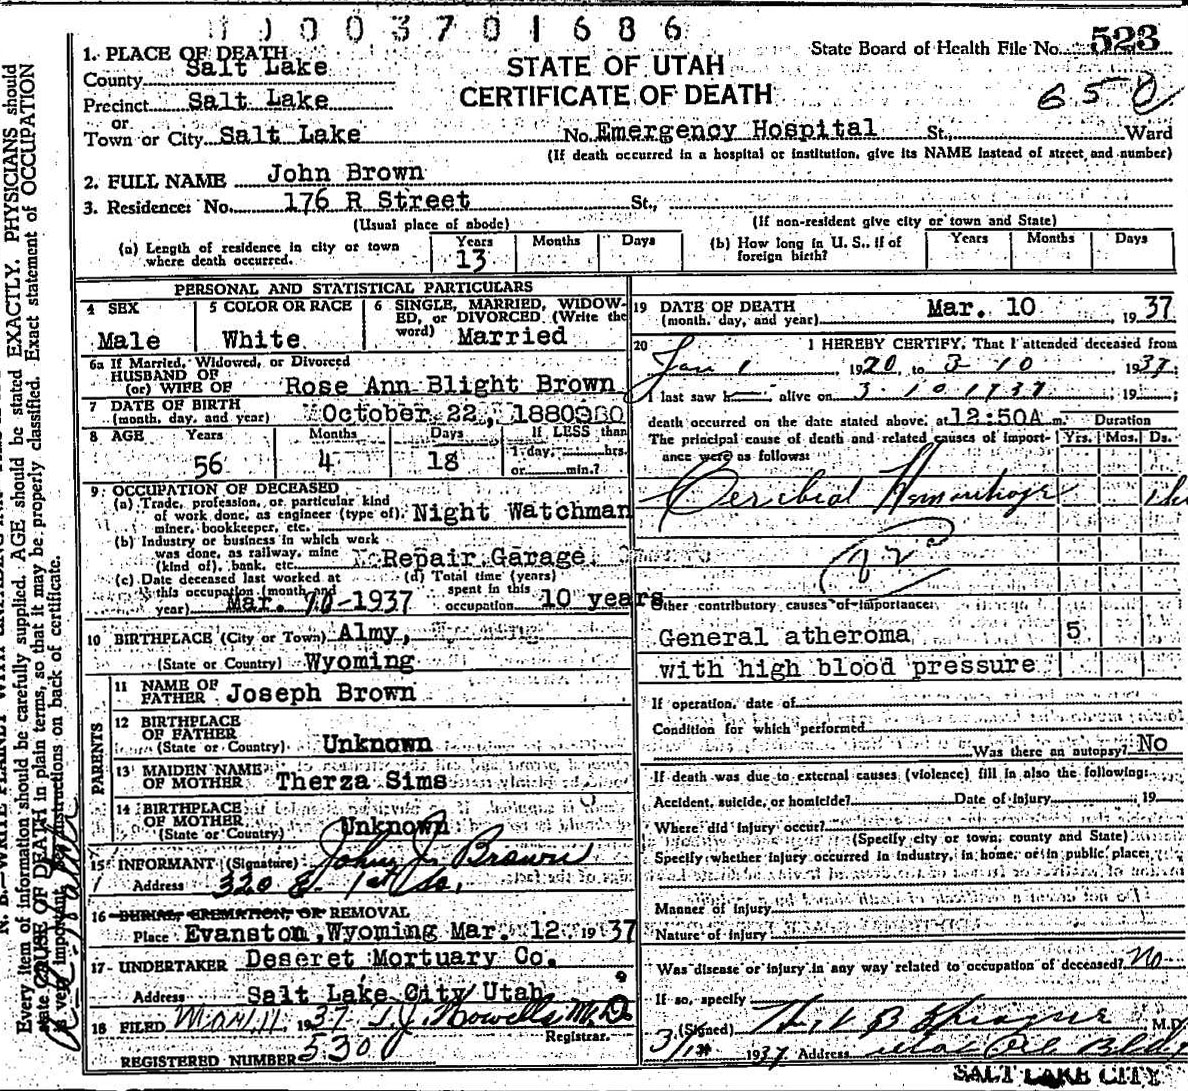 1 0 0 3 7 0 1 6 8 6
State Board of Health File No. 523
650
STATE OF UTAH
CERTIFICATE OF DEATH
1. PLACE OF DEATH
County Salt Lake
Precinct Salt Lake
or
Town or City Salt Lake No. Emergency Hospital St., Ward
(If death occurred in a hospital or institution, give its NAME instead of street and number)
2. FULL NAME John Brown
3. Residence: No. 176 R Street St.,
(Usual place of abode) (If non-resident give city or town and State)
(a) Length of residence in city or town where death occurred. Years 13 Months Days
(b) How long in U. S., if of foreign birth? Years Months Days
PERSONAL AND STATISTICAL PARTICULARS
4 SEX Male
5 COLOR OR RACE White
6 SINGLE, MARRIED, WIDOWED, or DIVORCED (Write the word) Married
6a If Married, Widowed, or Divorced
HUSBAND OF
(or) WIFE OF Rose Ann Blight Brown
7 DATE OF BIRTH
(month, day, and year) October 22, 1880
8 AGE Years 56 Months 4 Days 18 If LESS than 1 day, hrs. or min.?
9 OCCUPATION OF DECEASED
(a) Trade, profession, or particular kind
of work done, as engineer (type of), Night Watchman
miner, bookkeeper, etc.
(b) Industry or business in which work
was done, as railway, mine
(kind of), bank, etc. Repair Garage
(c) Date deceased last worked at
this occupation (month and
year) Mar. 10-1937
(d) Total time (years)
spent in this
occupation 10 years
10 BIRTHPLACE (City or Town) Almy,
(State or Country) Wyoming
PARENTS
11 NAME OF
FATHER Joseph Brown
12 BIRTHPLACE
OF FATHER
(State or Country) Unknown
13 MAIDEN NAME
OF MOTHER Therza Sims
14 BIRTHPLACE
OF MOTHER
(State or Country) Unknown
15 INFORMANT (Signature) John J. Brown
Address 320 E. 1st So.
16 BURIAL, CREMATION, OR REMOVAL
Place Evanston, Wyoming Mar. 12 1937
17 UNDERTAKER Deseret Mortuary Co.
Address Salt Lake City Utah
18 FILED Mar 11, 1937 T.J. Howells M.D.
Registrar.
REGISTERED NUMBER 530
19 DATE OF DEATH
(month, day, and year) Mar. 10 1937
20 I HEREBY CERTIFY, That I attended deceased from
Jan 1 1920, to 3 10 1937;
I last saw h alive on 3 10 1937, 19 ;
death occurred on the date stated above, at 12:50A m.
The principal cause of death and related causes of importance were as follows:
Duration
Yrs. Mos. Ds.
Cerebral Hemorrhage
Other contributory causes of importance:
General atheroma 5
with high blood pressure
If operation, date of
Condition for which performed
Was there an autopsy? No
If death was due to external causes (violence) fill in also the following:
Accident, suicide, or homicide? Date of injury , 19
Where did injury occur?
(Specify city or town, county and State)
Specify whether injury occurred in industry, in home, or in public place:
Manner of injury
Nature of injury
Was disease or injury in any way related to occupation of deceased? No
If so, specify
(Signed) B Sprague M.D.
1937 Address Bldg
SALT LAKE CITY
Every item of information should be carefully supplied. AGE should be stated EXACTLY. PHYSICIANS should
state CAUSE OF DEATH in plain terms, so that it may be properly classified. Exact statement of OCCUPATION
is very important. instructions on back of certificate.